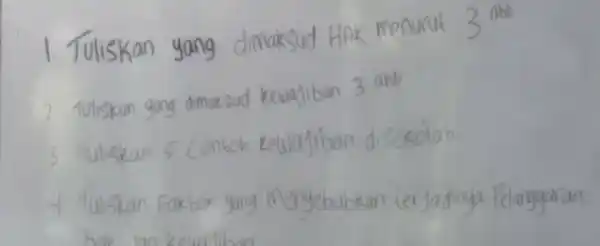 1 Tuliskan yang dimaksud Hak menurut 3 ahli
2 Tuliskan yang dimaksud kewajiban 3 ahli
3 Tuliskan 5 Contoh kewajiban di Sekolah
4 Tuliskan Faktor yang Menyebabkan terjadinya Pelanggaran
hak dan kewajiban